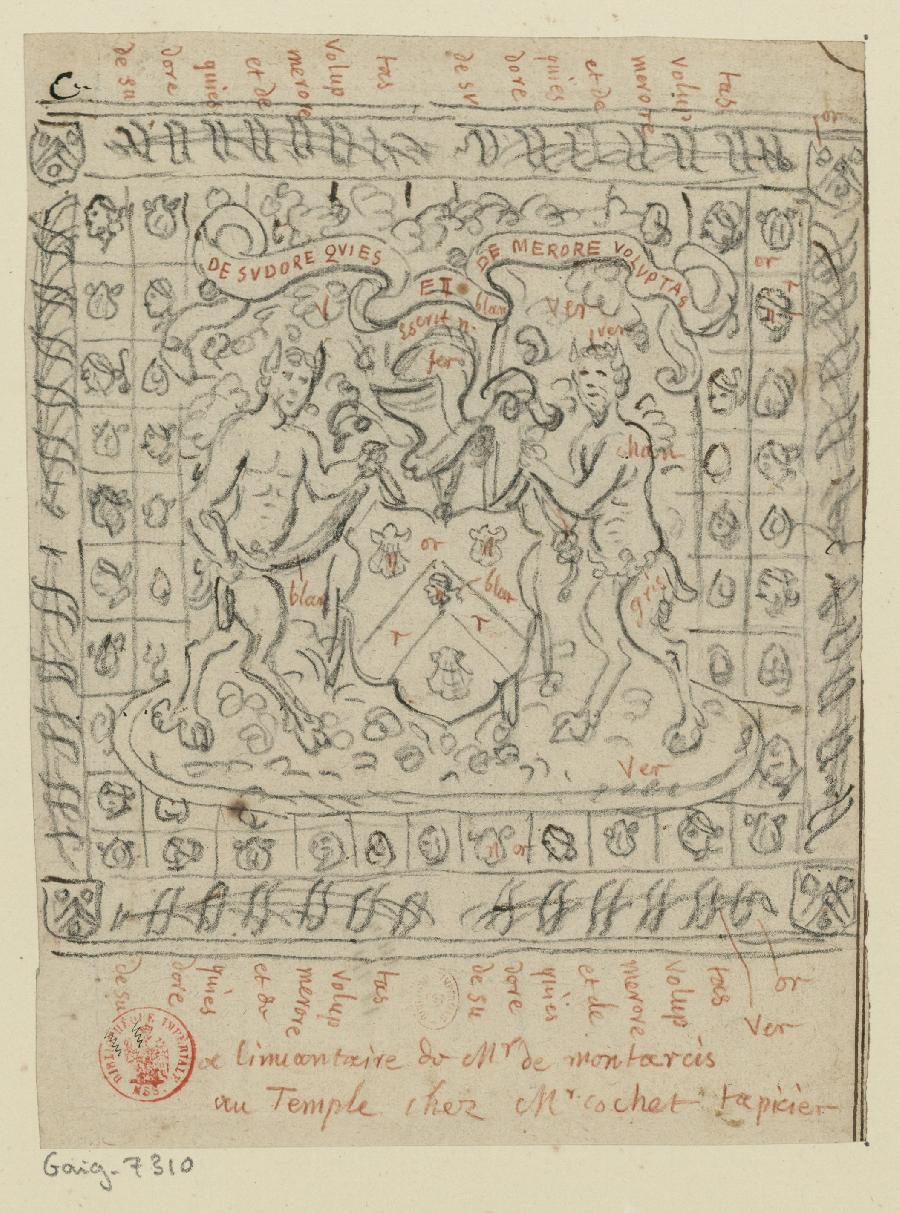 C
de su
dore
quies
et de
merore
volup
tas
de su
dore
quies
et de
merore
volup
tas
or
DE SVDORE QVIES
ET
DE MERORE VOLVPTAS
blan
V
ver
ver
fer
or
chan
or
blan
blan
gris
r
r
ver
or
de su
dore
quies
et de
merore
volup
tas
de su
dore
quies
et de
merore
volup
tas
or
ver
a limuantaire de Mr de montarcis
au Temple chez Mr cochet tapicier
BIBLIOTHEQUE IMPERIALE MSS.
Gaig. 7310